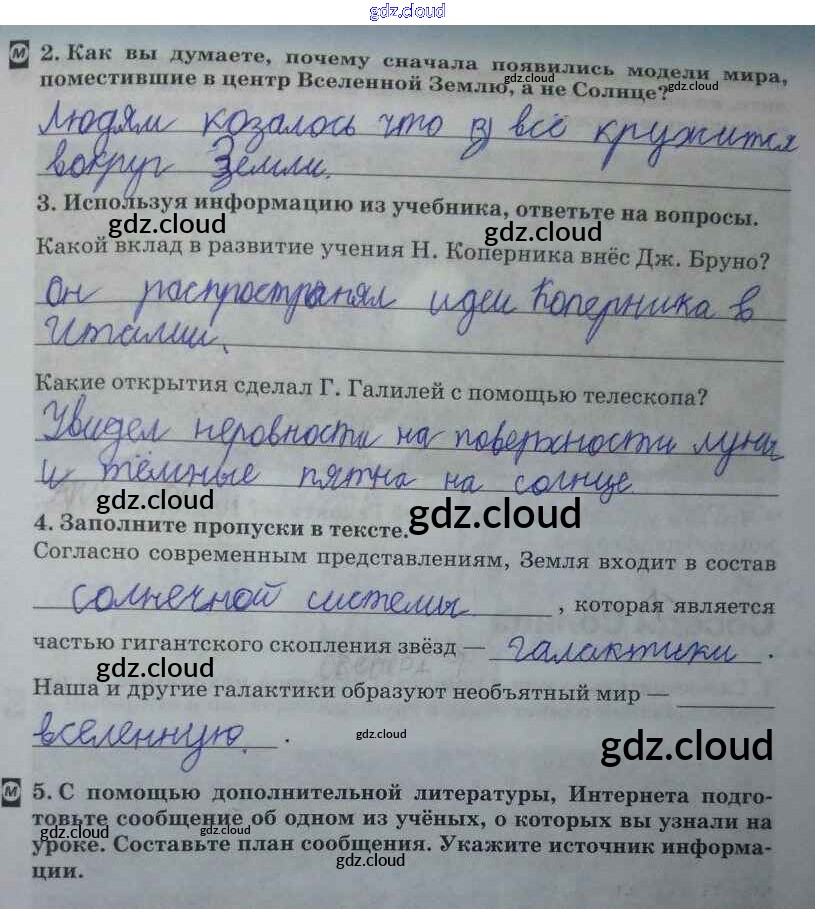 gdz.cloud
М 2. Как вы думаете, почему сначала появились модели мира,
поместившие в центр Вселенной Землю, а не Солнце?
gdz.cloud
gdz.cloud
Людям козалось что всё кружится
вокруг Земли.
3. Используя информацию из учебника, ответьте на вопросы.
gdz.cloud gdz.cloud
Какой вклад в развитие учения Н. Коперника внёс Дж. Бруно?
Он распространял идеи Коперника в
Италии.
Какие открытия сделал Г. Галилей с помощью телескопа?
Увидел неровности на поверхности луны
и тёмные пятна на солнце.
gdz.cloud gdz.cloud
4. Заполните пропуски в тексте.
Согласно современным представлениям, Земля входит в состав
солнечной системы , которая является
частью гигантского скопления звёзд — галактики .
gdz.cloud
Наша и другие галактики образуют необъятный мир —
вселенную. .
gdz.cloud gdz.cloud
М 5. С помощью дополнительной литературы, Интернета подго-
товьте сообщение об одном из учёных, о которых вы узнали на
gdz.cloud gdz.cloud
уроке. Составьте план сообщения. Укажите источник информа-
gdz.cloud
ции.